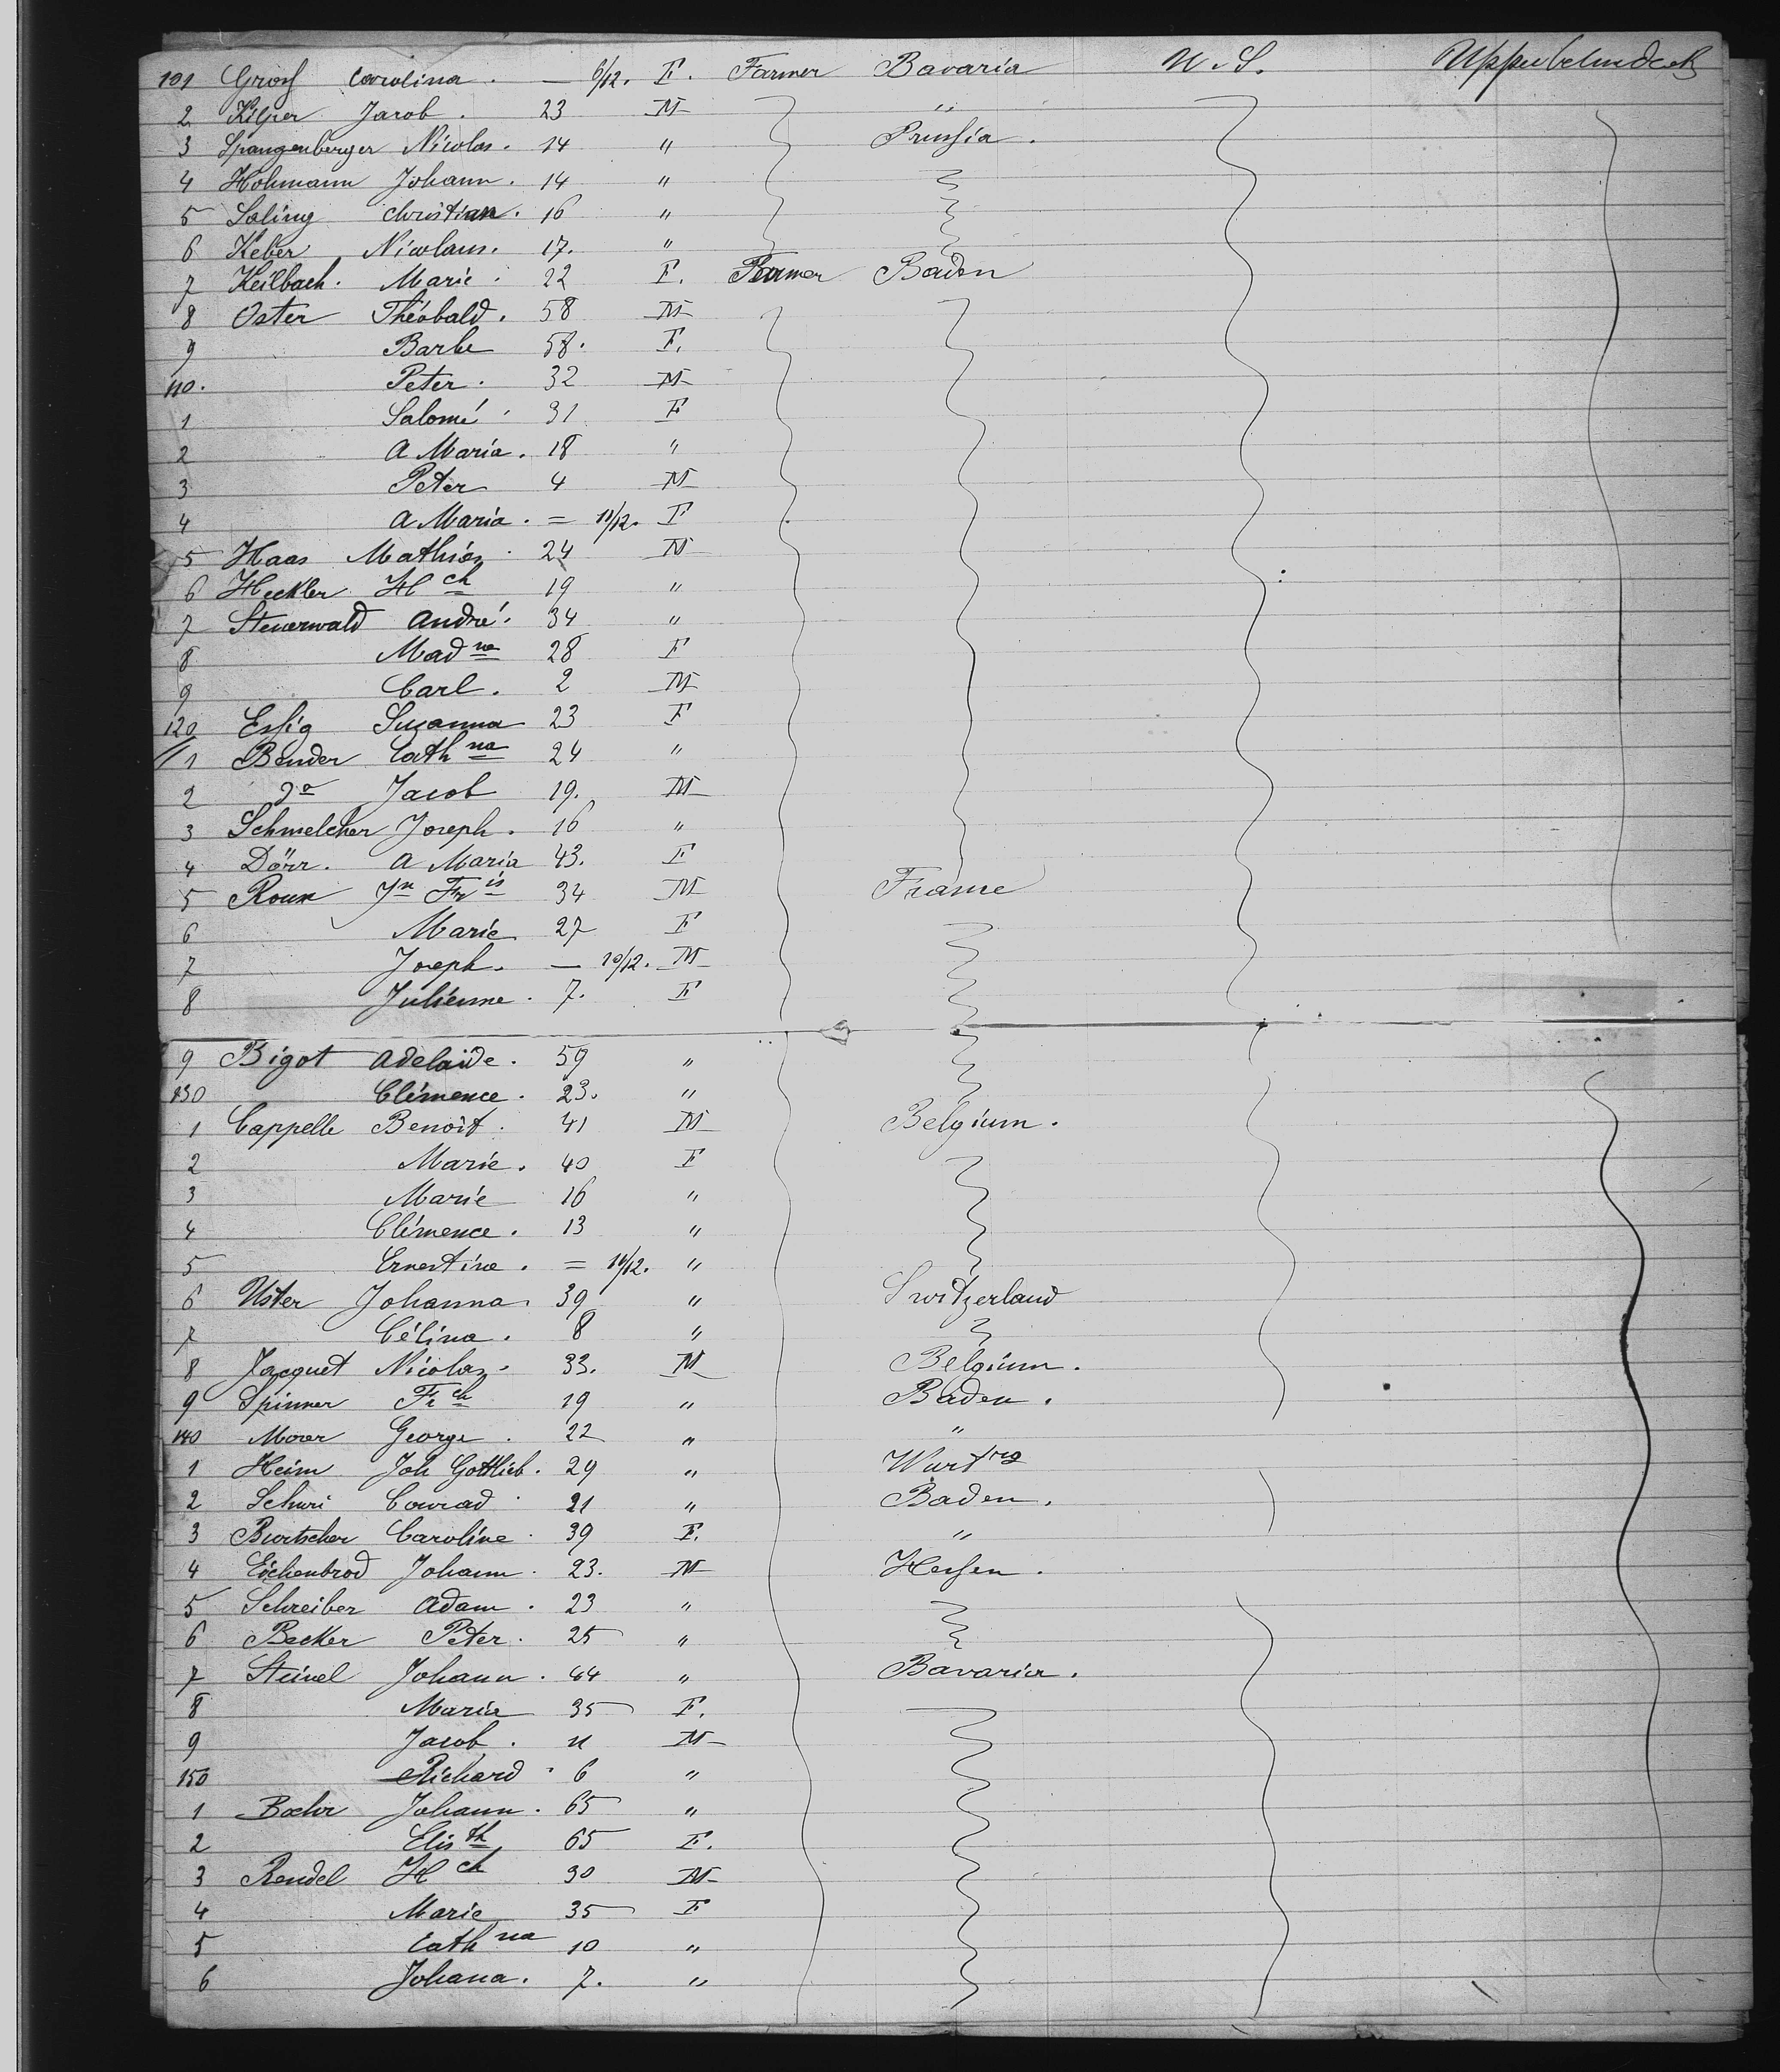 101 Groß Carolina . — 6/12. F. Farmer Bavaria U. S.
2 Kilper Jacob . 23 M "
3 Spangenberger Nicolas . 14 " Prussia .
4 Hohmann Johann . 14 "
5 Saling Christian . 16 "
6 Keber Nicolaus . 17. "
7 Keilbach . Marie . 22 F. Farmer Baden
8 Oster Théobald . 58 M
9 Barbe 58 . F.
110 . Peter . 32 M
1 Salomé . 31 F
2 A Maria . 18 "
3 Peter 4 M
4 A Maria . = 11/12. F
5 Haas Mathias . 24 M
6 Heckler Hch 19 "
7 Steuerwald André . 34 "
8 Madna 28 F
9 Carl . 2 M
120 Eßig Suzanna 23 F
1 Bender Cathna 24 "
2 do Jacob 19. M
3 Schmelcher Joseph . 16 "
4 Dörr . A Maria 43. F
5 Roux Jn Fris 34 M France
6 Marie 27 F
7 Joseph . — 10/12. M
8 Julienne . 7. F
9 Bigot Adelaïde . 59 "
130 Clémence . 23. "
1 Cappelle Benoit . 41 M Belgium .
2 Marie . 40 F
3 Marie 16 "
4 Clémence . 13 "
5 Ernestine . = 11/12. "
6 Uster Johanna 39 " Switzerland
7 Célina . 8 "
8 Jacquet Nicolas . 33. M Belgium .
9 Spinner Frch 19 " Baden .
140 Moser George . 22 " "
1 Heim Joh Gottlieb . 29 " Wurtrg
2 Schuri Conrad . 21 " Baden .
3 Burtscher Caroline . 39 F. "
4 Eichenbrod Johann . 23. M Heßen .
5 Schreiber Adam . 23 "
6 Becker Peter . 25 "
7 Steinel Johann . 44 " Bavaria .
8 Maria 35 F.
9 Jacob . 11 M
150 Richard . 6 "
1 Boehr Johann . 65 "
2 Elisth 65 F.
3 Rendel Hch 30 M
4 Marie 35 F
5 Cathna 10 "
6 Johana . 7. "